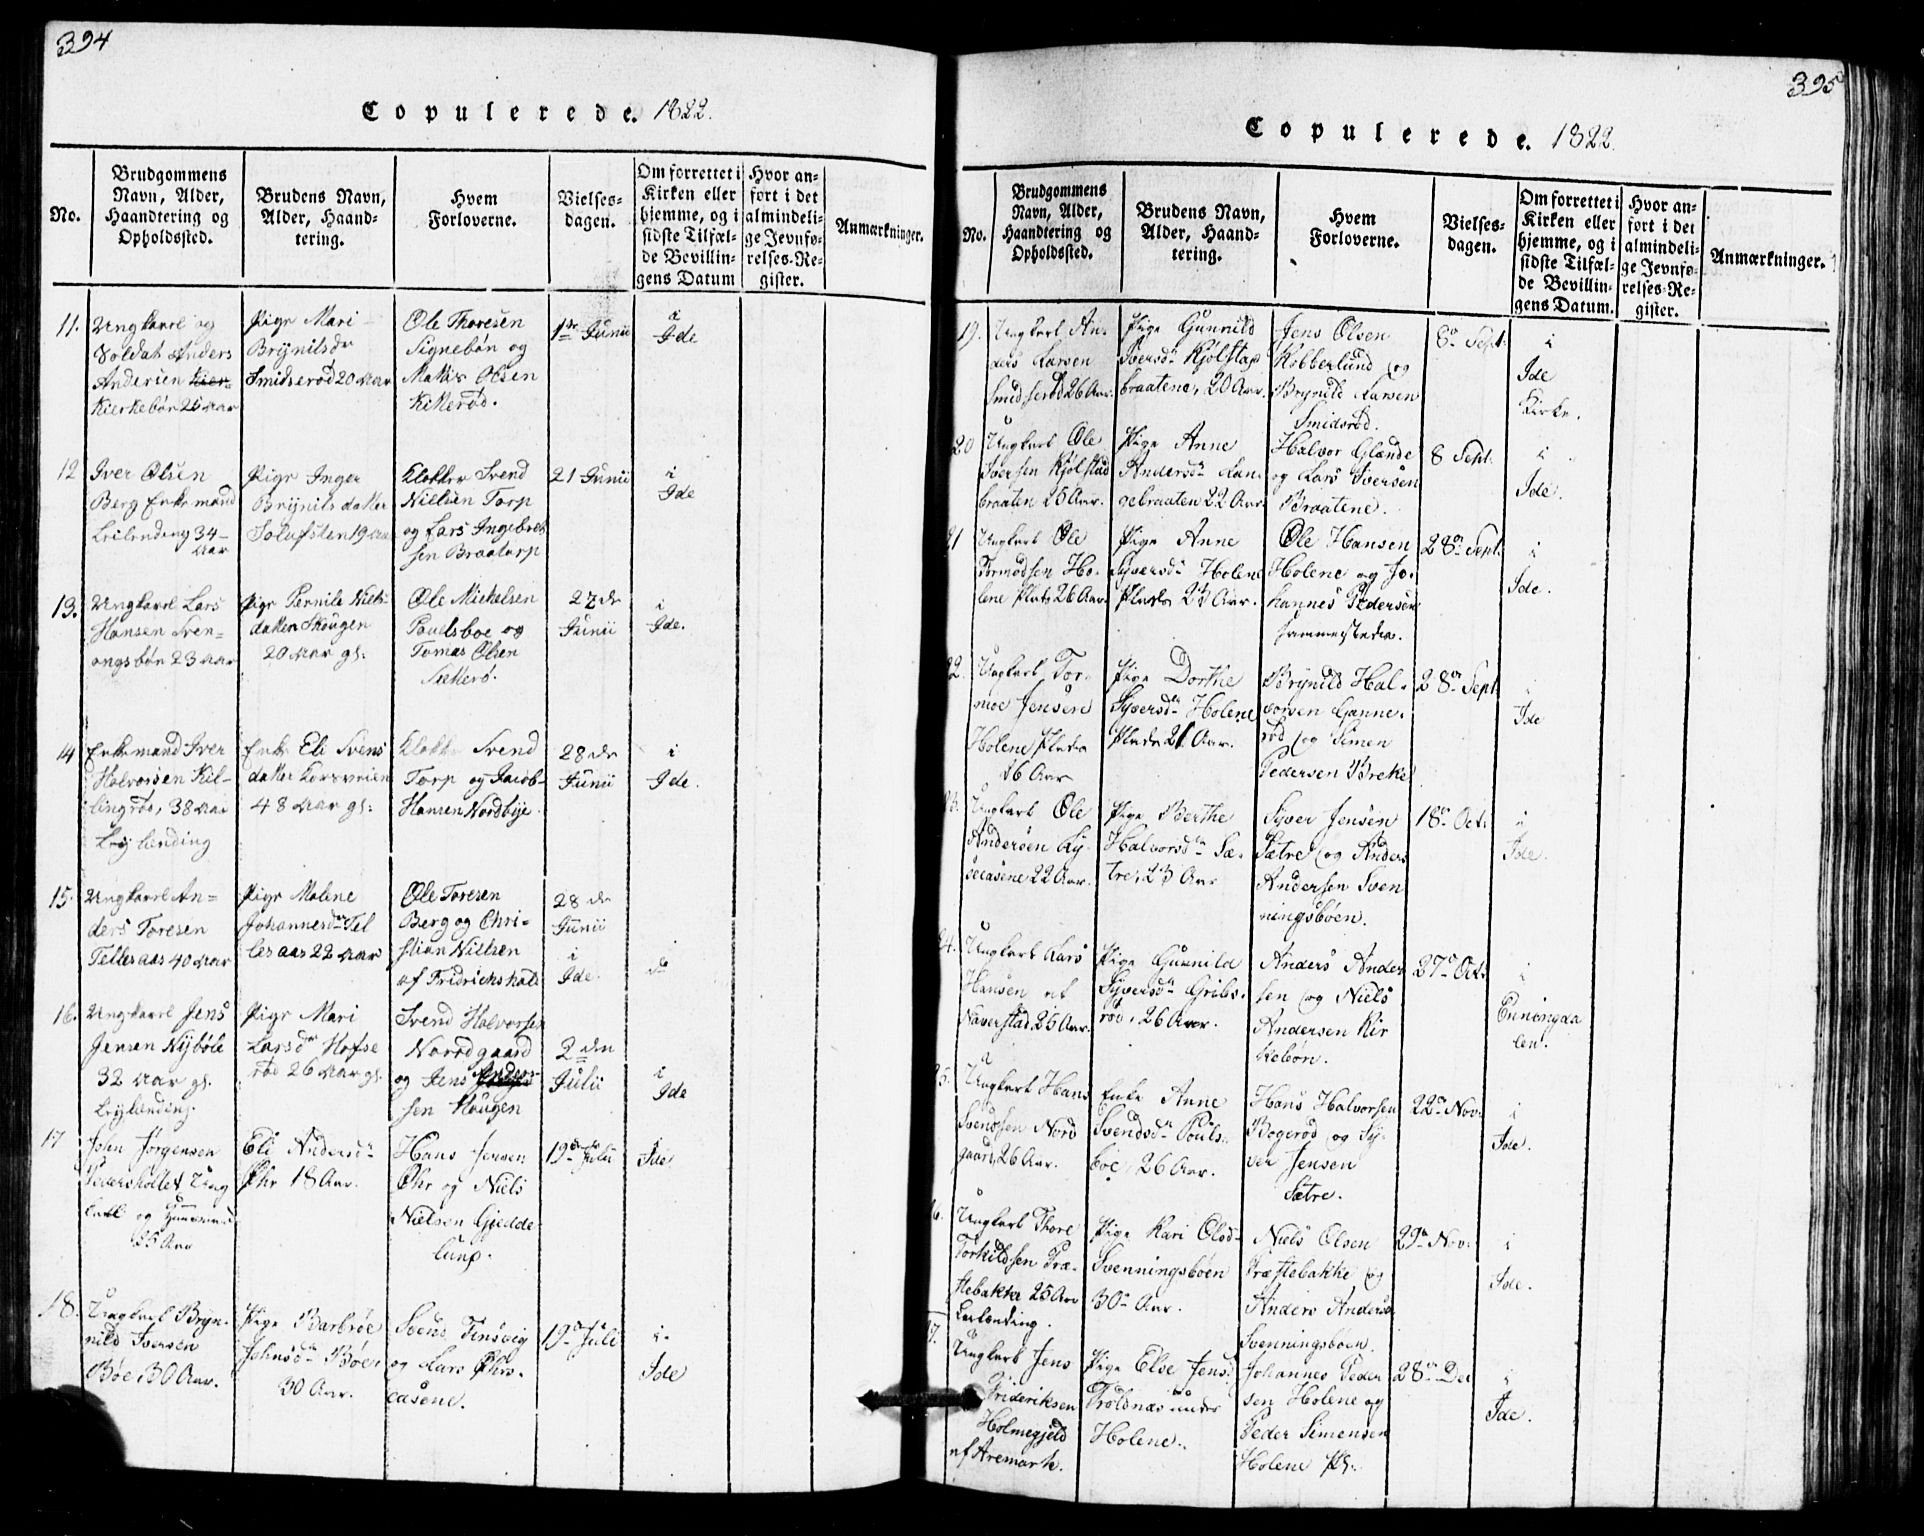 394
Copulerede. 1822.
No.
Brudgommens Navn, Alder, Haandtering og Opholdssted.
Brudens Navn, Alder, Haandtering.
Hvem Forloverne.
Vielses-dagen.
Om forrettet i Kirken eller hjemme, og i sidste Tilfælde Bevillingens Datum
Hvor anført i det almindelige Jevnførelses-Register.
Anmærkninger.
11.
Ungkarl og
Soldat Anders
Andersen
Kierkebön 25 Aar
Pige Mari
Brynilsdr
Smidserød 20 Aar
Ole Thoresen
Signebön og
Mathis Olsen
Killerød.
1ste Junii
i
Ide
12
Iver Olsen
Berg Enkemand
Leilending 34
Aar
Pige Inger
Brynils datter
19 Aar
Klokker Svend
Nielsen Torp
og Lars Ingebret
sen Braatorp
21 Junii
i
Ide
13.
Ungkarl Lars
Hansen Sven-
ongsbön 23 Aar
Pige Pernille Niels
datter Skougen
20 Aar gl.
Ole Michelsen
Poulsboe og
Tomas Olsen
27de
Junii
i
Ide.
14
Enkemand Iver
Halvorsen Kil-
lingrød, 38 Aar
Leylænding
Enke Eli Svens
datter
48 Aar gl:
Klokker Svend
Torp og Jacob
Hansen Nordbye
28de
Junii
i
Ide.
15.
Ungkarl An-
ders Toresen
Tellesaas 40 Aar
Pige Malene
Johannesdr Tel
lesaas 22 Aar
Ole Toresen
Berg og Chri-
stian Nielsen
af Fridrichshald
28de
Junii
i
Ide.
16.
Ungkarl Jens
Jensen Nyböle
32 Aar gl.
Leylænding.
Pige Mari
Larsdr Hofse
rød 26 Aar gl.
Svend Halvorsen
Noordgaard
og Jens Anders
sen Hougen
2den
Julii
i
Ide
17
John Jörgensen
Pedersholtet Ung
karl og
25 Aar
Eli Andersdr
Öhr 18 Aar.
Hans Jensen
Öhr og Niels
Nielsen Gjedde
lund.
19de Julii
i
Ide
18.
Ungkarl Bryn-
nild Iversen
Böe, 30 Aar.
Pige Barbröe
Johnsdr Böe,
30 Aar.
Svend
og Lars Öhrs-
casene.
19de Juli
i
Ide
395
Copulerede. 1822.
No.
Brudgommens Navn, Alder, Haandtering og Opholdssted.
Brudens Navn, Alder, Haandtering.
Hvem Forloverne.
Vielses-dagen.
Om forrettet i Kirken eller hjemme, og i sidste Tilfælde Bevillingens Datum.
Hvor anført i det almindelige Jevnførelses-Register.
Anmærkninger.
19.
Ungkarl An-
ders Larsen
Smidserød 26 Aar.
Pige Gunnild
Iversdr Kjölstad
braatene, 20 Aar.
Jens Olsen
Kobberlund og
Brynild Larsen
Smidsrød.
8de Sept:
i
Ide
Kirke.
20
Ungkarl Ole
Iversen Kjölstad
braaten 25 Aar.
Pige Anne
Andersdr Lan-
gebraaten 22 Aar.
Halvor Glende
og Lars Iversen
Braatene.
8 Sept.
i
Ide.
21
Ungkarl Ole
Tormodsen Ho-
lene Plads 26 Aar.
Pige Anne
Syversdr Holene
Plads 23 Aar.
Ole Hansen
Holene og Jo-
hannes Pedersen
sammestedes.
28de Sept.
i
Ide.
22.
Ungkarl Tor-
moe Jensen
Holene Plads
Pige Dorthe
Syversdr Holene
Plads 21 Aar.
Brynild Hal-
vorsen Ganne-
rød og Simen
Pedersen Breke
28de Sept
i
Ide
Ungkarl Ole
Andersen Ky-
secasene 22 Aar.
Pige Berthe
Halvorsdr Sæ-
tre, 23 Aar
Syver Jensen
Sætre og Anders
Andersen Sven
ningsböen.
18de Oct.
i
Ide.
Ungkarl Lars
Hansen af
Naverstad 25 Aar.
Pige Gunnild
Syversdr Gribs-
röd, 26 Aar.
Anders Ander
sen og Niels
Andersen Kir
kebön.
27de Oct.
i
Enningda
len.
Ungkarl Hans
Svendsen Nord
gaard, 26 Aar.
Enke Anne
Svendsdr Pouls-
boe, 26 Aar.
Hans Halvorsen
Bogerød og Sy-
ver Jensen
Sætre.
22de Nov.
i
Ide.
Ungkarl Thore
Torkildsen Præ-
stebakke 25 Aar
Leilænding.
Pige Kari Olsd.
Svenningsböen
30 Aar.
Niels Olsen
Præstebakke og
Anders Anders
Svenningsböen.
29de Nov.
i
Ide.
Ungkarl Jens
Frideriksen
Holmegjeld
af Aremark.
Pige Else Jens
Troldnæs under
Holene.
Johannes Peder
sen Holene og
Peder Simensen
Holene Pl.
28de Dec
i
Ide.